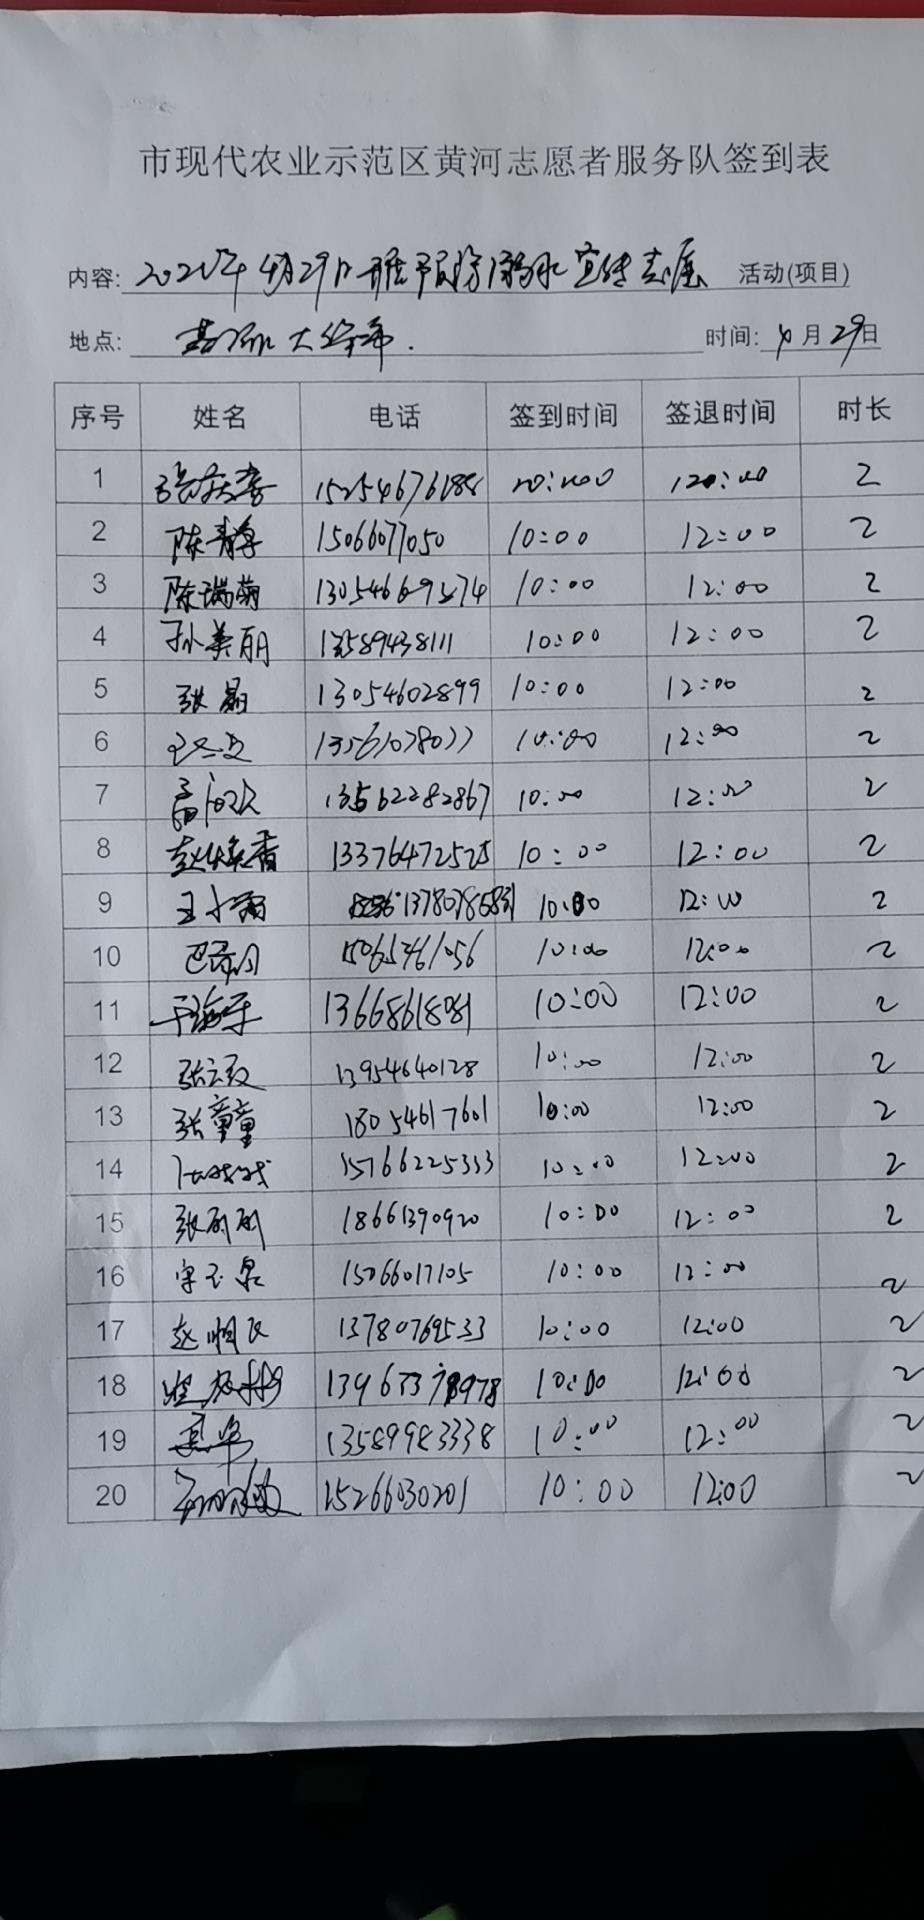 市现代农业示范区黄河志愿者服务队签到表
内容: 4月29日 预防溺水宣传志愿 活动(项目)
地点: 时间: 4月29日
序号 姓名 电话 签到时间 签退时间 时长
1 15254676188 12:00 2
2 陈青静 15066077050 10:00 12:00 2
3 陈瑞菊 13054669274 10:00 12:00 2
4 孙美丽 13589438111 10:00 12:00 2
5 张晶 13054602899 10:00 12:00 2
6 13561078077 10:00 12:00 2
7 13562282867 10:00 12:00 2
8 赵焕香 13376472525 10:00 12:00 2
9 王小雨 10:00 12:00 2
10 15065461056 10:00 12:00 2
11 13668618081 10:00 12:00 2
12 13954640128 10:00 12:00 2
13 张童童 18054617601 10:00 12:00 2
14 15766225333 10:00 12:00 2
15 张丽丽 18661390920 10:00 12:00 2
16 宋玉泉 15066017105 10:00 12:00 2
17 赵明民 13780769533 10:00 12:00 2
18 10:00 12:00 2
19 13589983338 10:00 12:00 2
20 15266030201 10:00 12:00 2